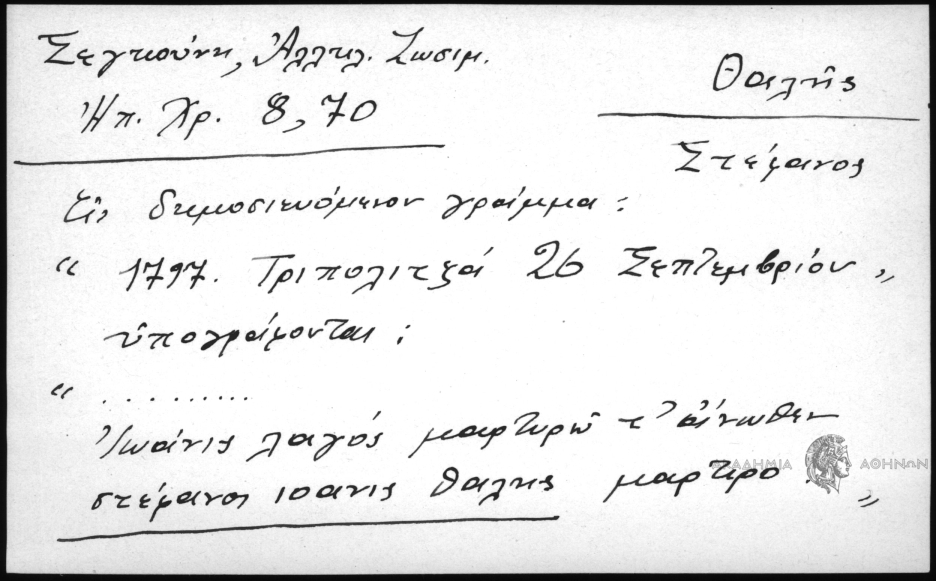 Σεγκούνη, Ἀλληλ. Ζωσιμ.
Ἠπ. Χρ. 8, 70
Θαλῆς
Στέφανος
Εἰς δημοσιευόμενον γράμμα:
“ 1797. Τριπολιτζά 26 Σεπτεμβρίου „
ὑπογράφονται:
“ ..........
Ἰωάνις λαγός μαρτυρῶ τ' ἄνωθεν
στέφανος ιοανις θαλης μαρτιρο „
ΑΚΑΔΗΜΙΑ ΑΘΗΝΩΝ